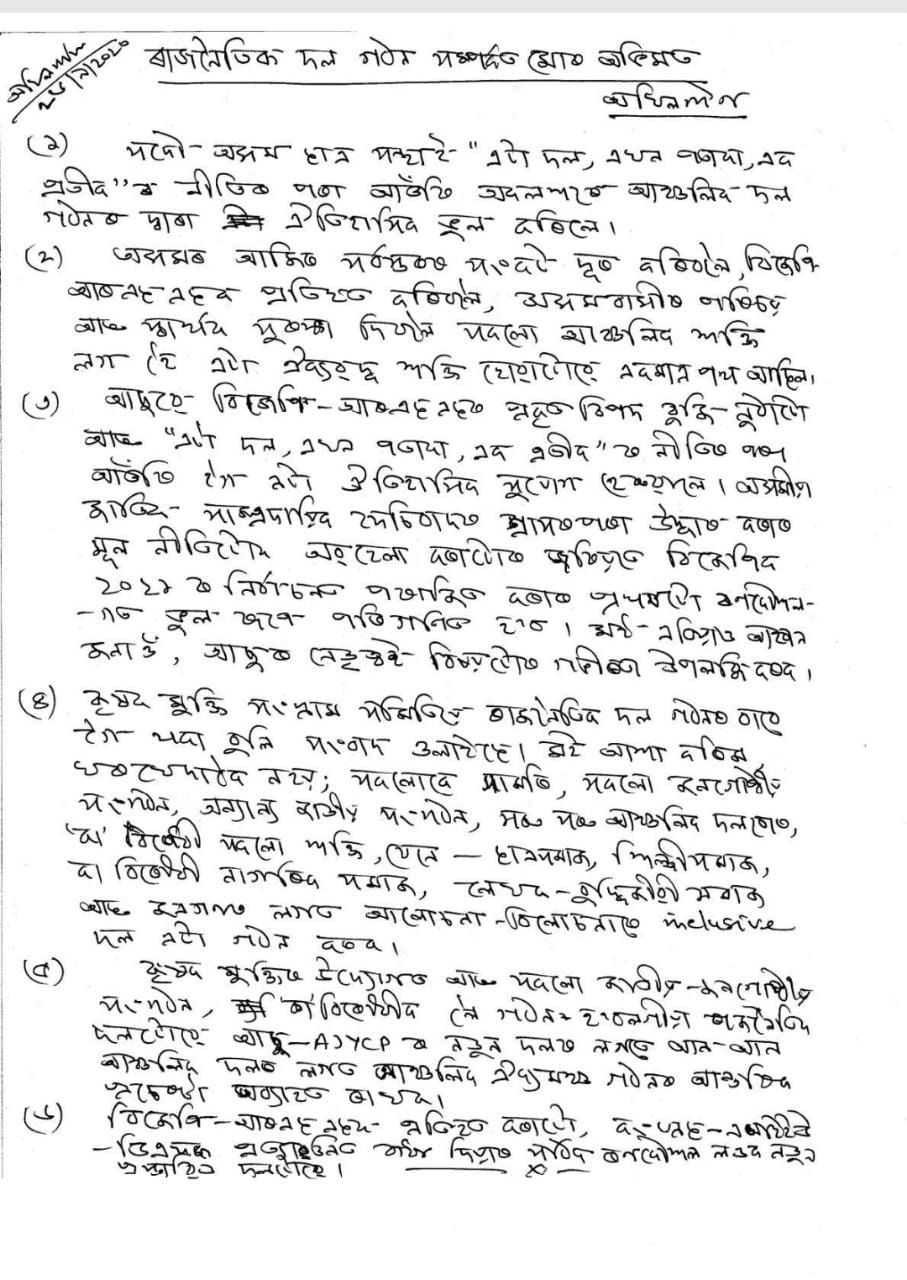 অখিল গগৈ
২৪/৭/২০২০
ৰাজনৈতিক দল গঠন সম্পৰ্কত মোৰ অভিমত
অখিল গগৈ
(১) সদৌ অসম ছাত্ৰ সন্থাই "এটা দল, এখন পতাকা, এক
প্ৰতীক"ৰ নীতিৰ পৰা আঁতৰি আঞ্চলিক দল
গঠনৰ দ্বাৰা ঐতিহাসিক ভুল কৰিলে।
(২) অসমৰ আজিৰ সংকট দূৰ কৰিবলৈ, বিজেপি
আৰএছএছক প্ৰতিহত কৰিবলৈ, অসমবাসীৰ পৰিচয়
আৰু স্বাৰ্থক সুৰক্ষা দিবলৈ সকলো আঞ্চলিক শক্তি
লগ হৈ এটা ঐক্যবদ্ধ শক্তি হোৱাটোৱে একমাত্ৰ পথ আছিল।
(৩) আছুৱে বিজেপি-আৰএছএছৰ প্ৰকৃত বিপদ বুজি নুঠাটো
আৰু "এটা দল, এখন পতাকা, এক প্ৰতীক"ৰ নীতিৰ পৰা
আঁতৰি এটা ঐতিহাসিক সুযোগ হেৰুৱালে। অসমীয়া
জাতিক সাম্প্ৰদায়িক ফেচিবাদৰ পৰা উদ্ধাৰ কৰাৰ
মূল নীতিটোক অৱহেলা কৰাটোৱে ভৱিষ্যতে বিজেপিক
২০২১ৰ নিৰ্বাচনত পৰাজিত কৰাৰ প্ৰথমটো ৰণকৌশল-
-গত ভুল হিচাপে পৰিগণিত হ'ব। মই এতিয়াও আহ্বান
জনাওঁ, আছুৰ নেতৃত্বই বিষয়টোৰ গভীৰতা উপলব্ধি কৰক।
(৪) কৃষক মুক্তি সংগ্ৰাম সমিতিয়ে ৰাজনৈতিক দল গঠনৰ বাবে
বুলি সংবাদ ওলাইছে। মই আশা কৰিম
নহয়; সকলোৱে সামৰি, সকলো জনগোষ্ঠীয়
সংগঠন, অন্যান্য জাতীয় সংগঠন, সৰু সৰু আঞ্চলিক দলবোৰ,
'কা' বিৰোধী সকলো শক্তি, যেনে — ছাত্ৰসমাজ, শিল্পীসমাজ,
কা বিৰোধী নাগৰিক সমাজ, লেখক-বুদ্ধিজীৱী সমাজ
আৰু জনগণৰ লগত আলোচনা-বিলোচনাৰে inclusive
দল এটা গঠন কৰক।
(৫) কৃষক মুক্তিৰ উদ্যোগত আৰু সকলো জাতীয়-জনগোষ্ঠীয়
সংগঠন, কা বিৰোধীক লৈ গঠন হ'বলগীয়া ৰাজনৈতিক
দলটোৱে আছু-AJYCP ৰ নতুন দলৰ লগতে আন-আন
আঞ্চলিক দলৰ লগত আঞ্চলিক ঐক্যমঞ্চ গঠনৰ আন্তৰিক
প্ৰচেষ্টা অব্যাহত ৰাখক।
(৬) বিজেপি-আৰএছএছক প্ৰতিহত কৰাটো,
প্ৰত্যাহ্বান সঠিক ৰণকৌশল লওক নতুন
প্ৰস্তাৱিত দলটোৱে।